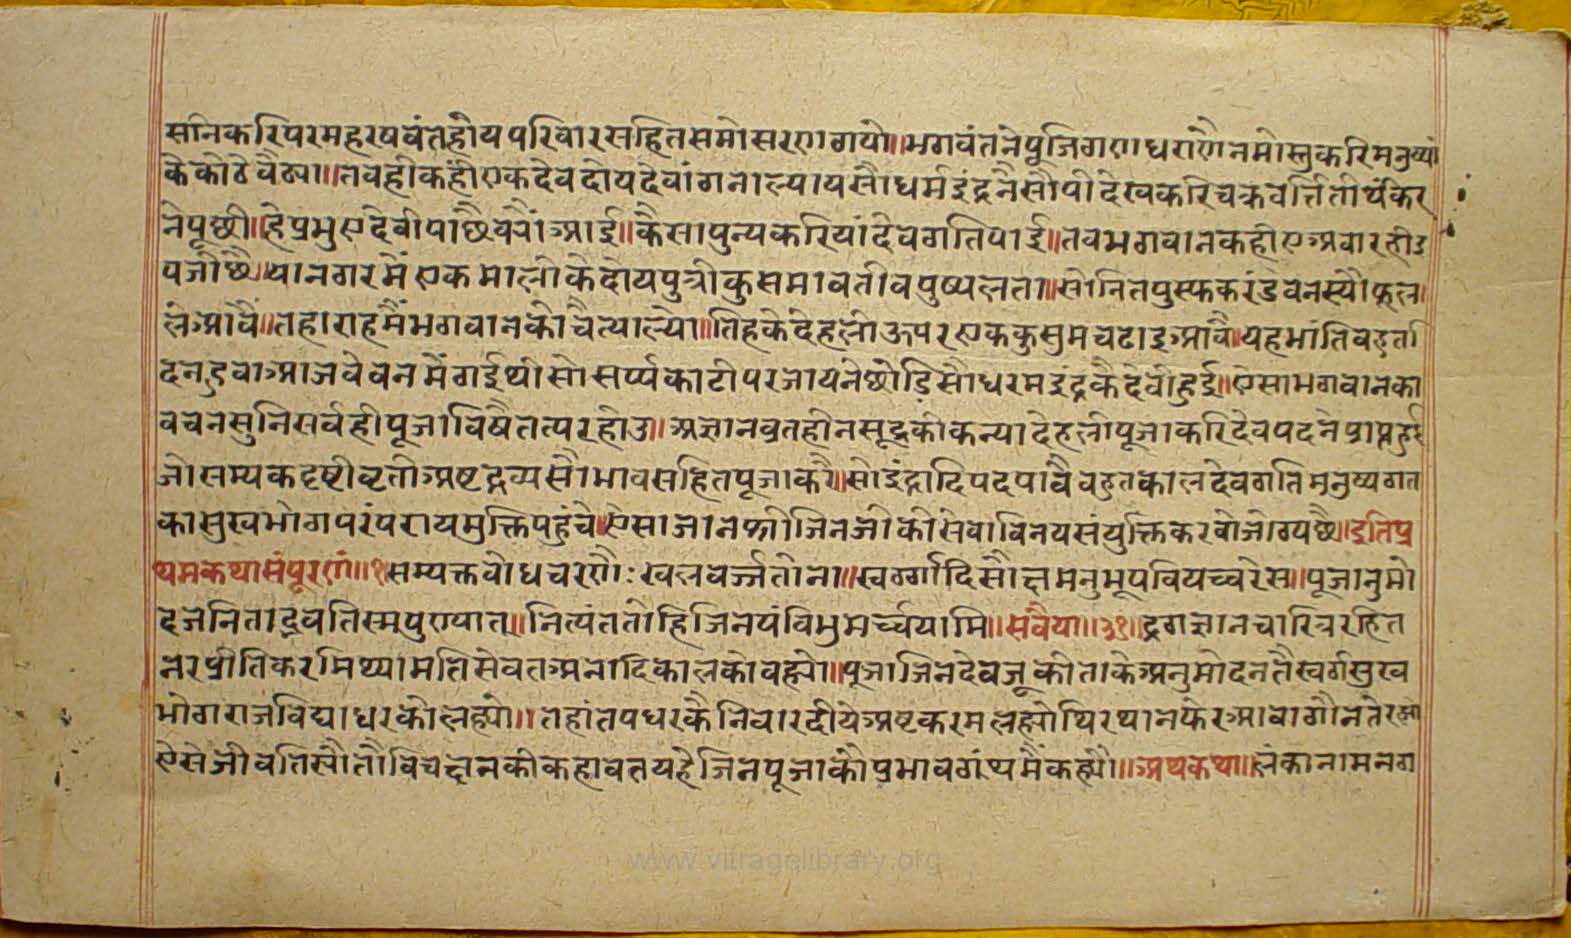 सुनिकरिपरमहरषवंतहोयपरिवारसहितसमोसरणगयो॥भगवंतनेपूजिगणधरांणैनमोस्तुकरिमनुष्यां
केकोठेबैठ्या॥तबहीकंहीएकदेवदोयदेवांगनाल्यायसौधर्मइंद्रनैसौपीदेखकरिचक्रवर्त्तितीर्थंकर
नेपूछी॥हेप्रभुएदेवीपाछैक्यौंआई॥कैसापुन्यकरियांदेवगतिपाई॥तबभगवानकहीएअबारहीउ
पजीछै॥यानगरमैंएकमालीकेदोयपुत्रीकुसमावतीवपुष्पलता॥सोनितपुस्फकरंडवनस्यौफूल
लेआवै॥तहाराहमैंभगवानकोचैत्यालयो॥तिहकेदेहलीऊपरएककुसुमचढाइआवै॥यहभांतिबहुतदि
दनहुवाआजवेवनमैंगईथीसोसर्प्पकाटीपरजायनेछोडिसौधरमइंद्रकैदेवीहुई॥ऐसाभगवानका
वचनसुनिसर्वहीपूजाविषैतत्परहोउ॥अज्ञानव्रतहीनसूद्रकीकन्यादेहलीपूजाकरिदेवपदनेप्राप्तहुई
जोसम्यकदृष्टीवृतीअष्टद्रव्यसौभावसहितपूजाकरै॥सोइंद्रादिपदपावैबहुतकालदेवगतिमनुष्यगत
कासुखभोगपरंपरायमुक्तिपहुंचे॥ऐसाजानश्रीजिनजीकीसेवाविनयसंयुक्तिकरवोजोग्यछै॥इतिप्र
थमकथासंपूरणं॥१॥सम्यक्तबोधचरणौःखलवर्ज्जतोना॥स्वर्ग्गादिसौक्षमनुभूयवियच्चरेस॥पूजानुमो
दजेनिताद्भवतिस्मपुण्यात्॥नित्यंततोहिजिनपंविभुमर्च्चयामि॥सवैया॥३१॥द्रगज्ञानचारित्ररहित
नरप्रीतिकरमिथ्यामतिसेवतअनादिकालकोबह्यो॥पूजाजिनदेवजूकीताकेअनुमोदनतैस्वर्गसुख
भोगराजविद्याधरकोलह्यो॥तहांतपधरकैनिवारदीयेअष्टकरमलह्योथिरथानफेरआवागौनतेरह्यो
ऐसेजीवतिस्यौतौविचदानकीकहावतयहैजिनपूजाकौप्रभावगंथमैंकह्यौ॥अथकथा॥लंकानामनग